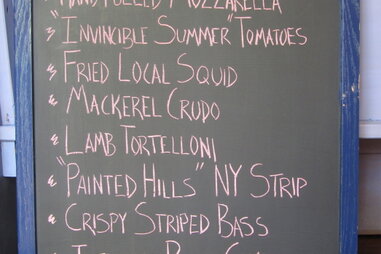 HAND PULLED MOZZARELLA
"INVINCIBLE SUMMER" TOMATOES
FRIED LOCAL SQUID
MACKEREL CRUDO
LAMB TORTELLONI
"PAINTED HILLS" NY STRIP
CRISPY STRIPED BASS